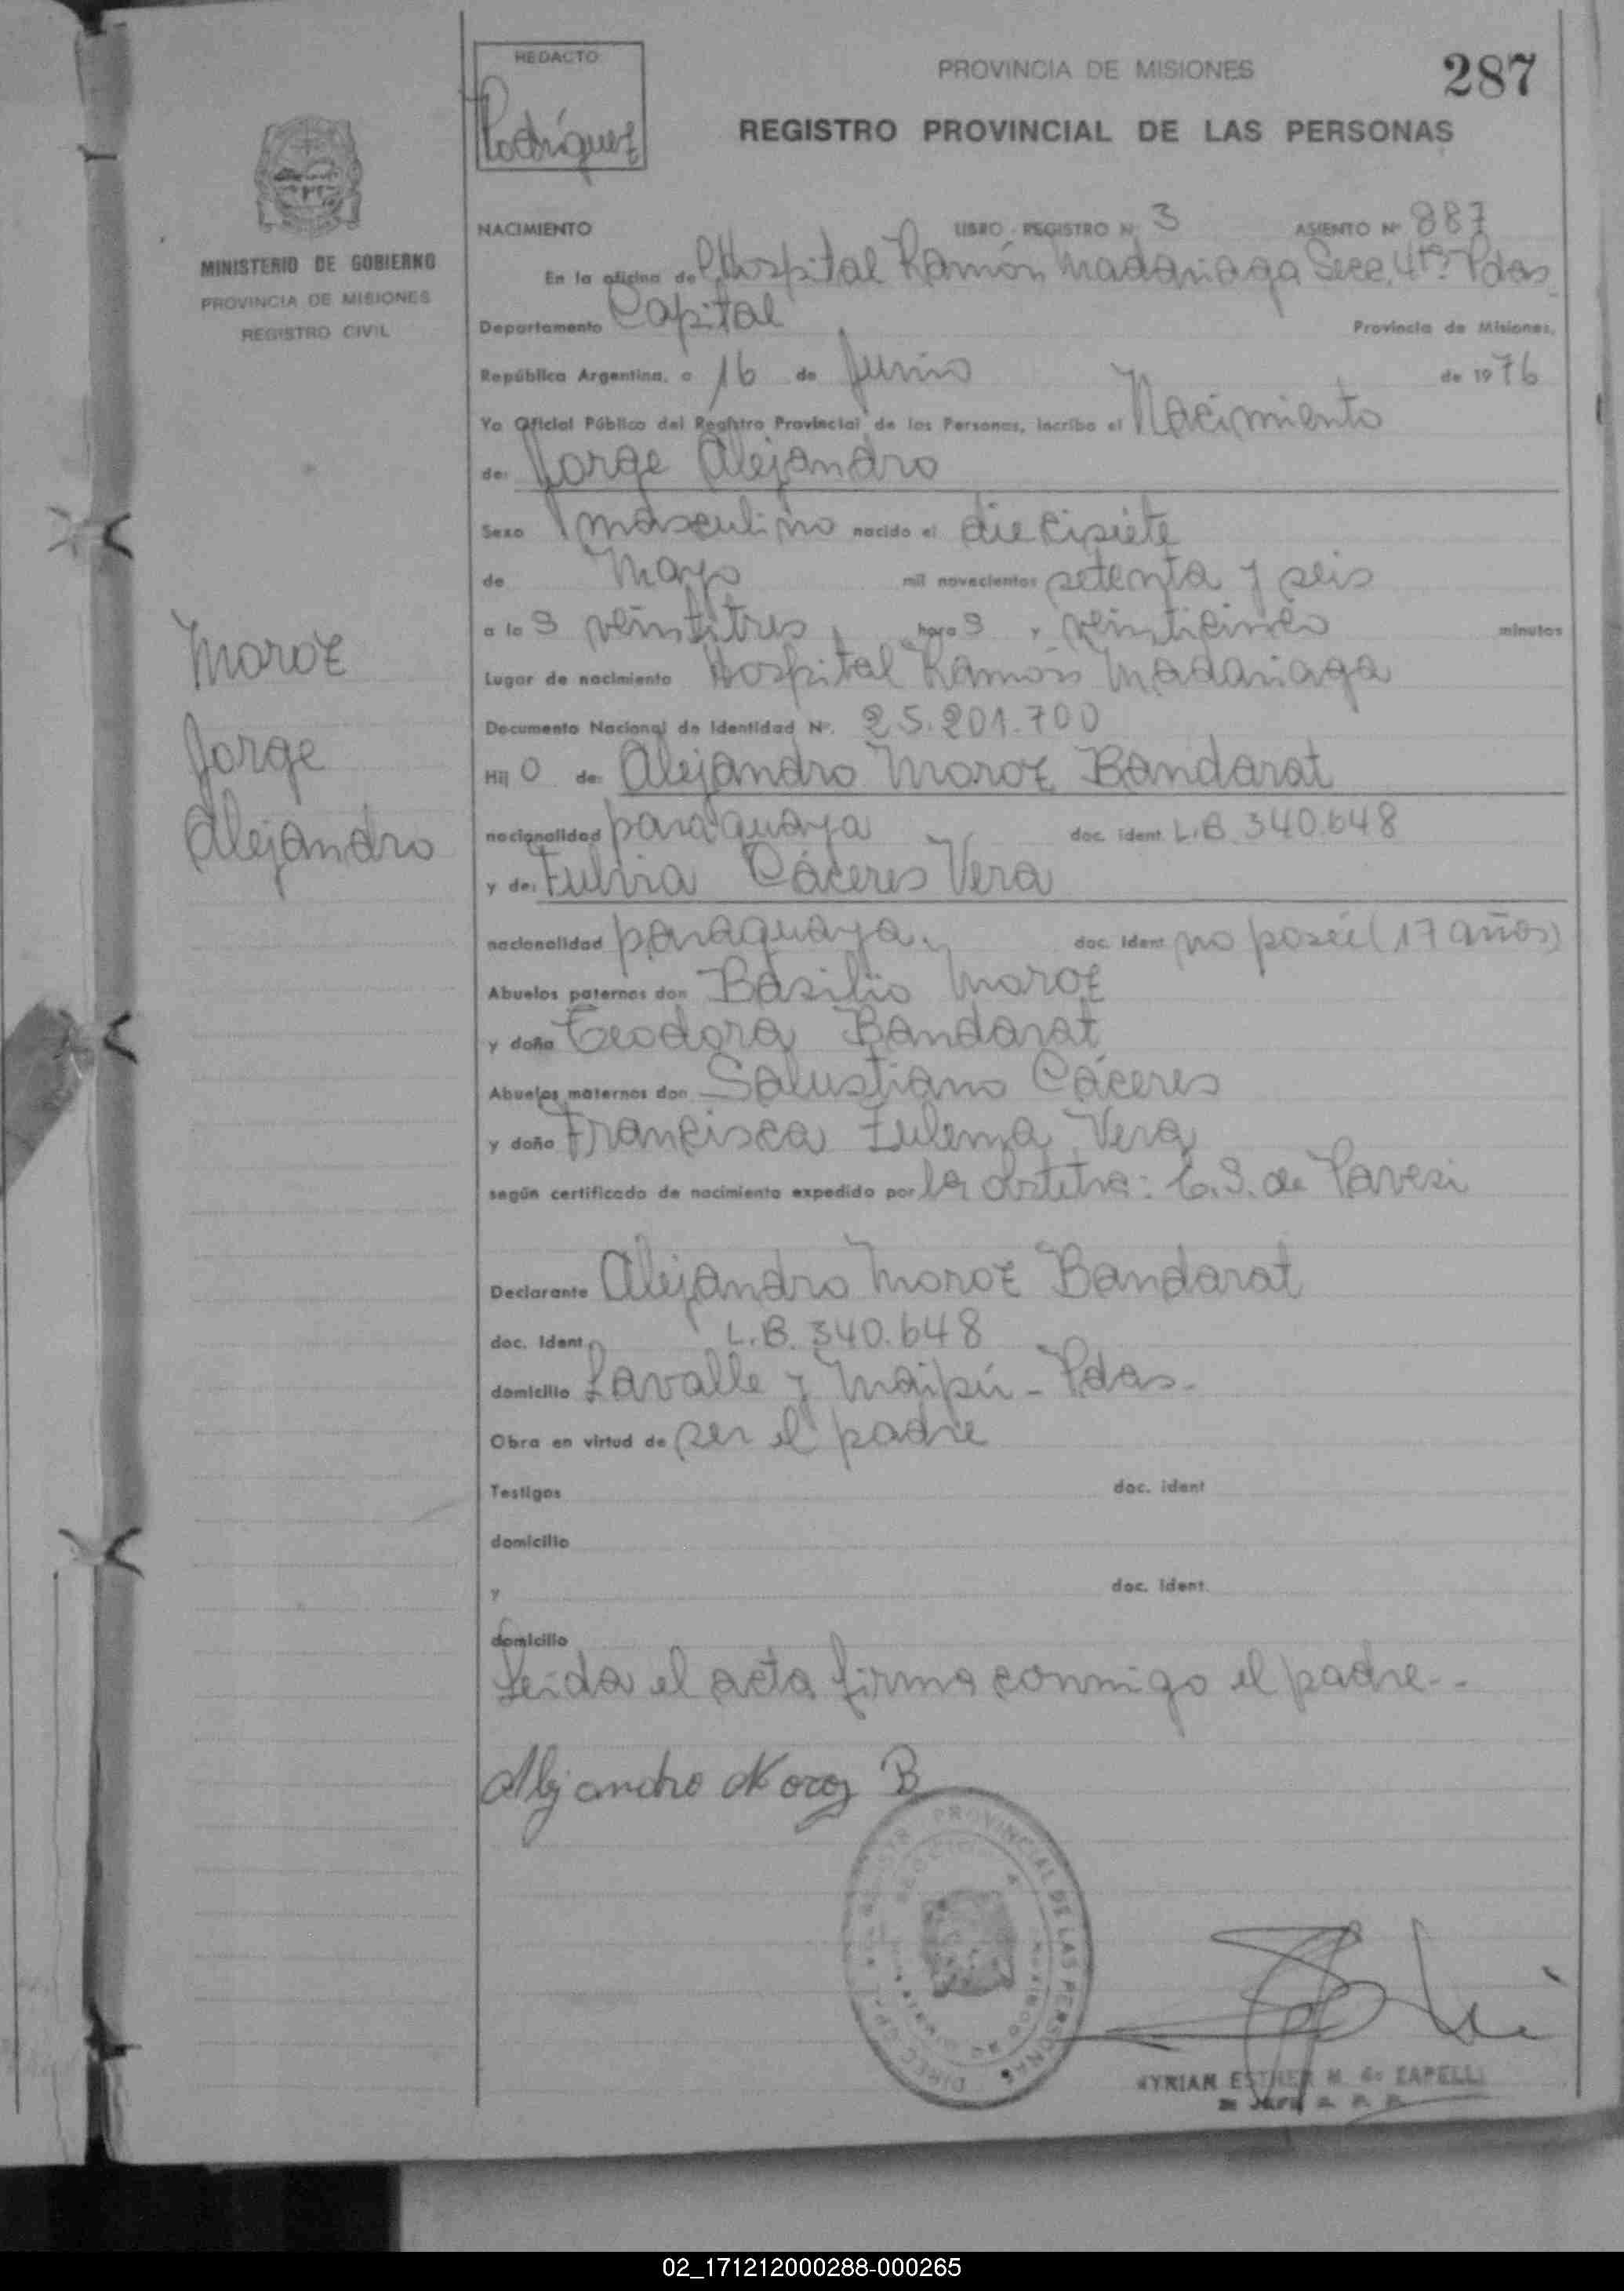 REDACTO
Rodríguez
PROVINCIA DE MISIONES
287
REGISTRO PROVINCIAL DE LAS PERSONAS
MINISTERIO DE GOBIERNO
PROVINCIA DE MISIONES
REGISTRO CIVIL
NACIMIENTO LIBRO - REGISTRO Nº 3 ASIENTO Nº 887
En la oficina del Hospital Ramón Madariaga Secc. 4ta Pdas
Departamento Capital Provincia de Misiones,
República Argentina, a 16 de Junio de 1976
Yo Oficial Público del Registro Provincial de las Personas, inscribo el Nacimiento
de: Jorge Alejandro
Sexo masculino nacido el diecisiete
de Mayo mil novecientos setenta y seis
a las veintitres horas y veinticinco minutos
Lugar de nacimiento Hospital Ramón Madariaga
Documento Nacional de Identidad Nº. 25.201.700
Hijo de: Alejandro Moroz Bandarat
nacionalidad paraguaya doc. ident. L.B. 340.648
y de: Fulvia Cáceres Vera
nacionalidad paraguaya. doc. ident no posee (17 años)
Abuelos paternos don Basilio Moroz
y doña Teodora Bandarat
Abuelos maternos don Salustiano Cáceres
y doña Francisca Zulema Vera
según certificado de nacimiento expedido por la obstetra: C.S. de Pavesi
Declarante Alejandro Moroz Bandarat
doc. Ident. L.B. 340.648
domicilio Lavalle y Maipú - Pdas.
Obra en virtud de ser el padre
Testigos doc. ident
domicilio
y doc. ident.
domicilio
Leida el acta firma conmigo el padre.-
Moroz
Jorge
Alejandro
Alejandro Moroz B
PROVINCIAL DE LAS PERSONAS
MYRIAN ESTHER M. de ZAPELLI
02_171212000288-000265